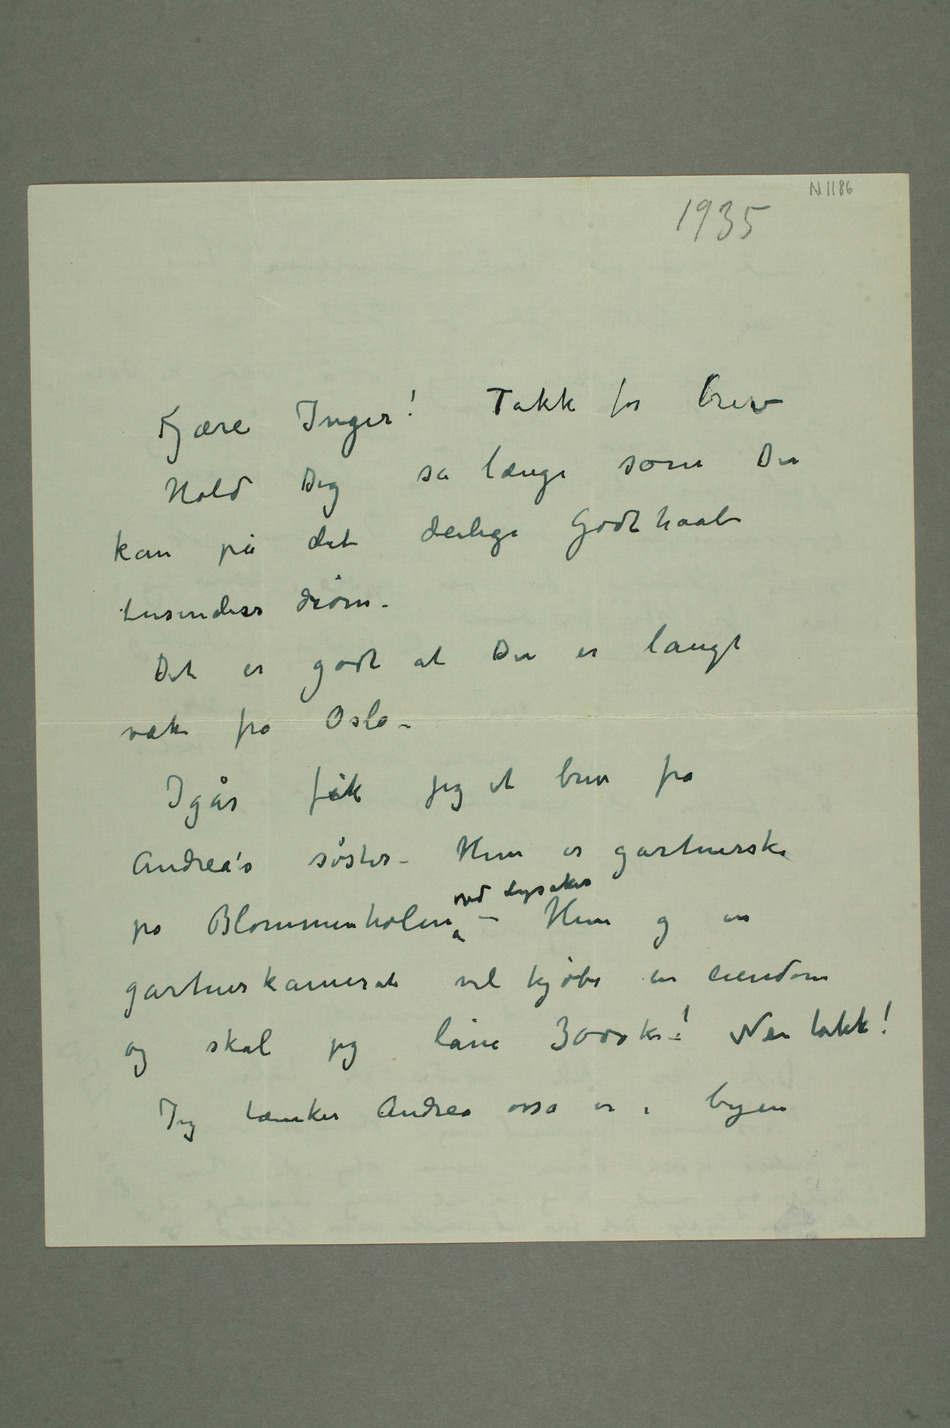 N 1186
1935
Kjære Inger! Takk for brev
Hold Dig så længe som Du
kan på det deilige Godthaab
tusinders drøm –
Det er godt at Du er langt
væk fra Oslo –
Igår fik jeg et brev fra
Andrea's søster – Hun er gartnerske
på Blommenholm ved Lysaker – Hun og en
gartnerkamerat vil kjøbe en eiendom
og skal jeg låne 3000 kr! Nei takk!
Jeg tænker Andrea osså er i byen